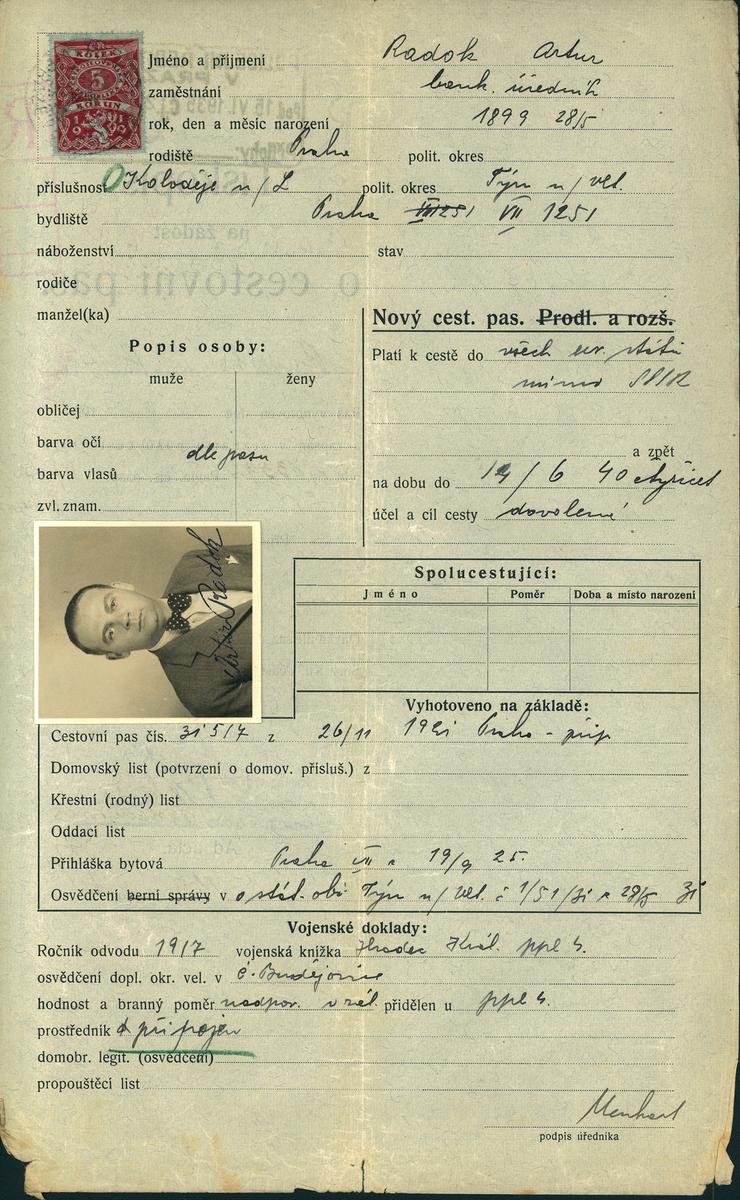 KOLEK
5
KORUN
1919
Jméno a příjmení Radok Artur
zaměstnání bank. úředník
rok, den a měsíc narození 1899 28/5
rodiště Praha polit. okres
příslušnost Koloděje n/L polit. okres Týn n/vlt.
bydliště Praha VII 1251 VII 1251
náboženství stav
rodiče
manžel(ka)
Nový cest. pas. Prodl. a rozš.
Popis osoby:
muže ženy
Platí k cestě do všech evr. států
mimo SSSR
obličej
barva očí
dle pasu
barva vlasů
zvl. znam.
a zpět
na dobu do 14/6 40 čtyřicet
účel a cíl cesty dovolená
Artur Radok
Spolucestující:
Jméno Poměr Doba a místo narození
Vyhotoveno na základě:
Cestovní pas čís. 31517 z 26/11 1931 Praha - přip
Domovský list (potvrzení o domov. přísluš.) z
Křestní (rodný) list
Oddací list
Přihláška bytová Praha VII z 19/9 25.
Osvědčení berní správy v o stát. obč Týn n/Vlt. č 1/51/31 z 28/5 31
Vojenské doklady:
Ročník odvodu 1917 vojenská knížka Hradec Král. ppl 4.
osvědčení dopl. okr. vel. v Č. Budějovice
hodnost a branný poměr nadpor. v zál. přidělen u ppl 4.
prostředník připojen
domobr. legit. (osvědčení)
propouštěcí list
Menhart
podpis úředníka